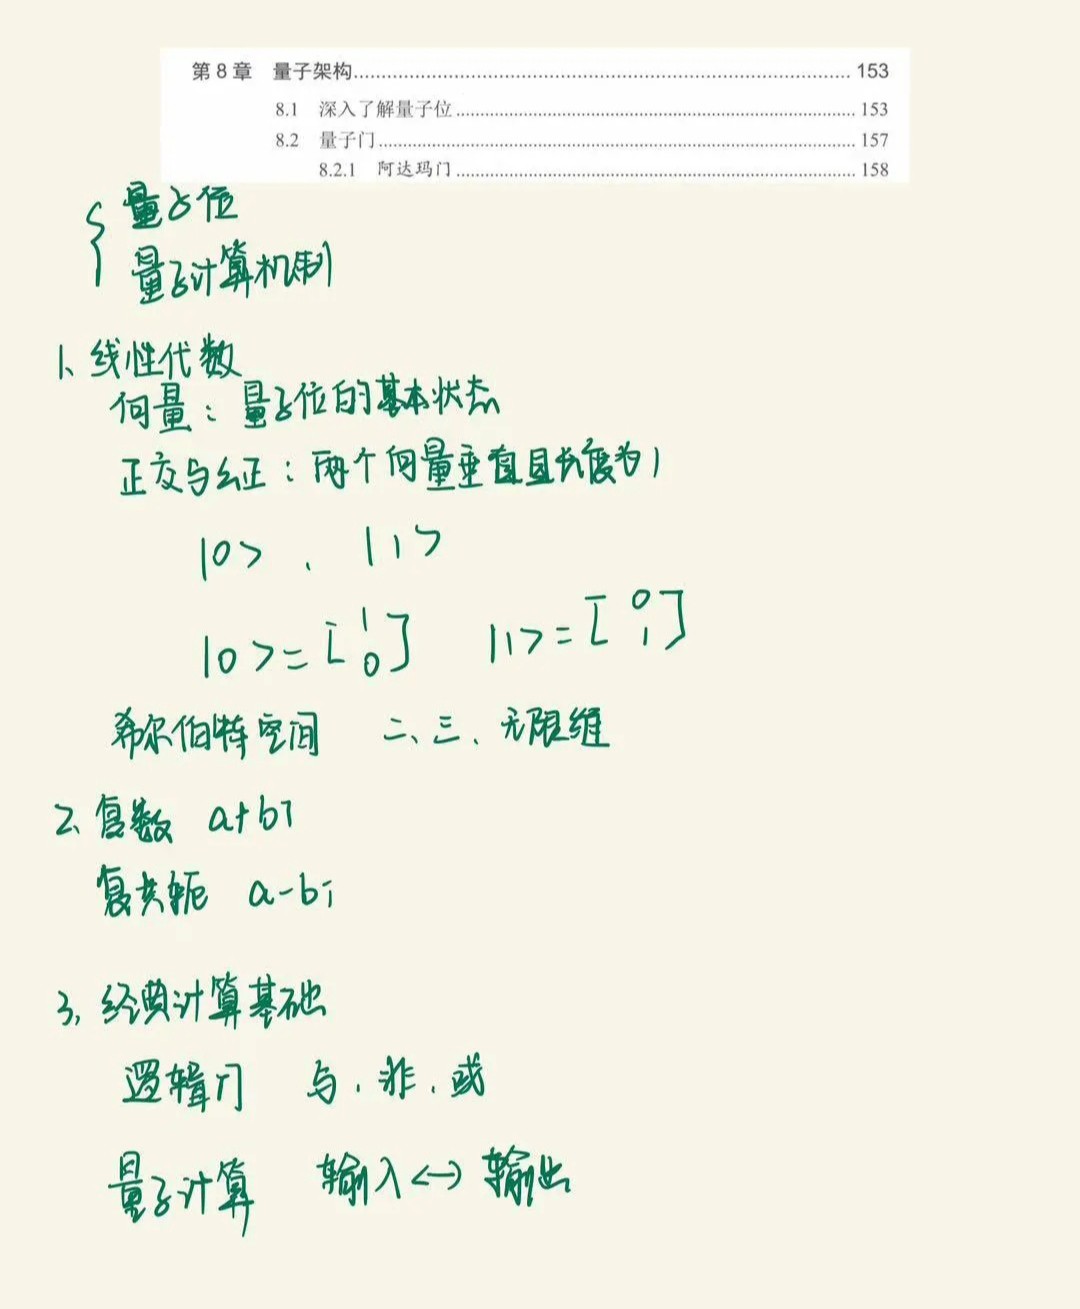 第 8 章 量子架构 153
8.1 深入了解量子位 153
8.2 量子门 157
8.2.1 阿达玛门 158
{ 量子位
量子计算机制
1、线性代数
向量：量子位的基本状态
正交与幺正：两个向量垂直且长度为1
|0> , |1>
|0>=[1 0] |1>=[0 1]
希尔伯特空间 二、三、无限维
2、复数 a+bi
复共轭 a-bi
3、经典计算基础
逻辑门 与、非、或
量子计算 输入<->输出